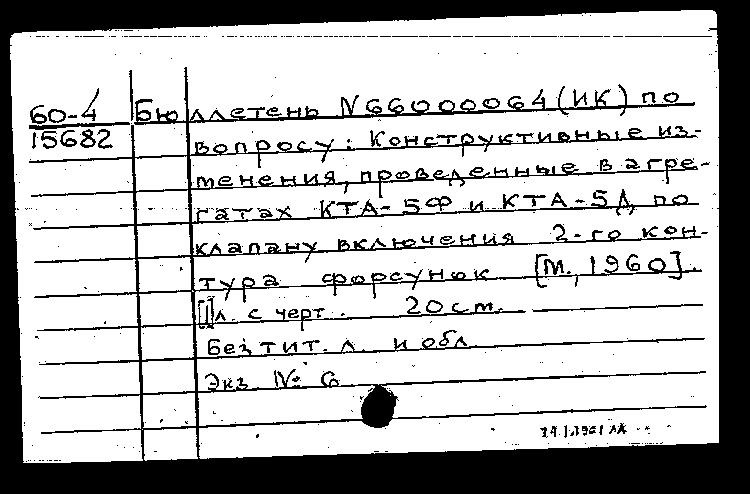 60-4 Бюллетень N66000064 (ИК) по
15682 вопросу: Конструктивные из-
менения, проведенные в агре-
гатах КТА-5Ф и КТА-5Д по
клапану включения 2-го кон-
тура форсунок [М., 1960].
[1]л. с черт. 20 см.
Без тит. л. и обл.
Экз № 6